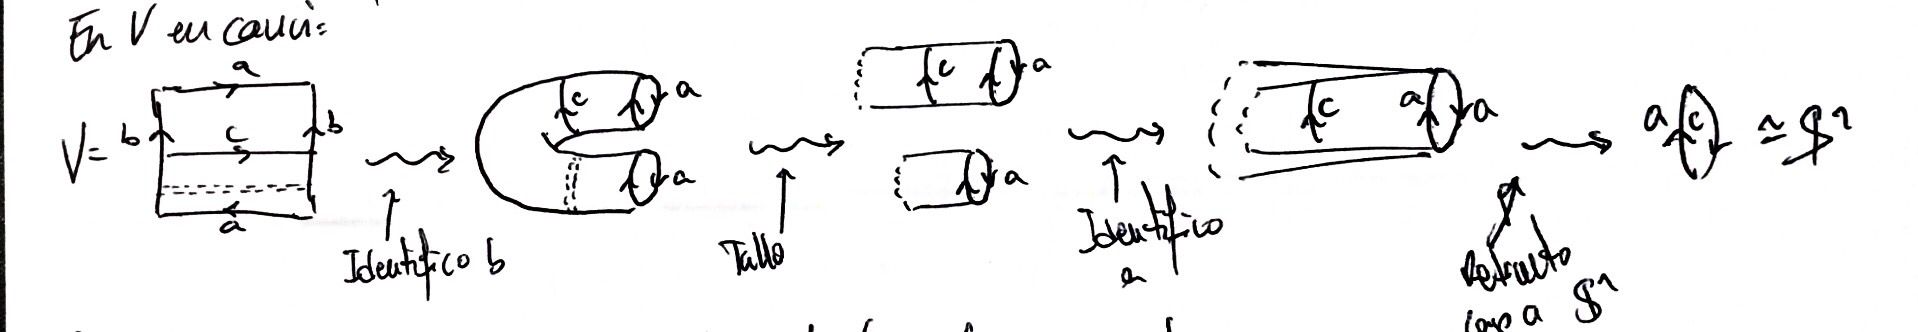 En V en canvi:
a
V= b c b
a
Identifico b
c a
a
Tallo
c a
a
Identifico
a
c a a
Retracto
a S¹
a c ≃ S¹